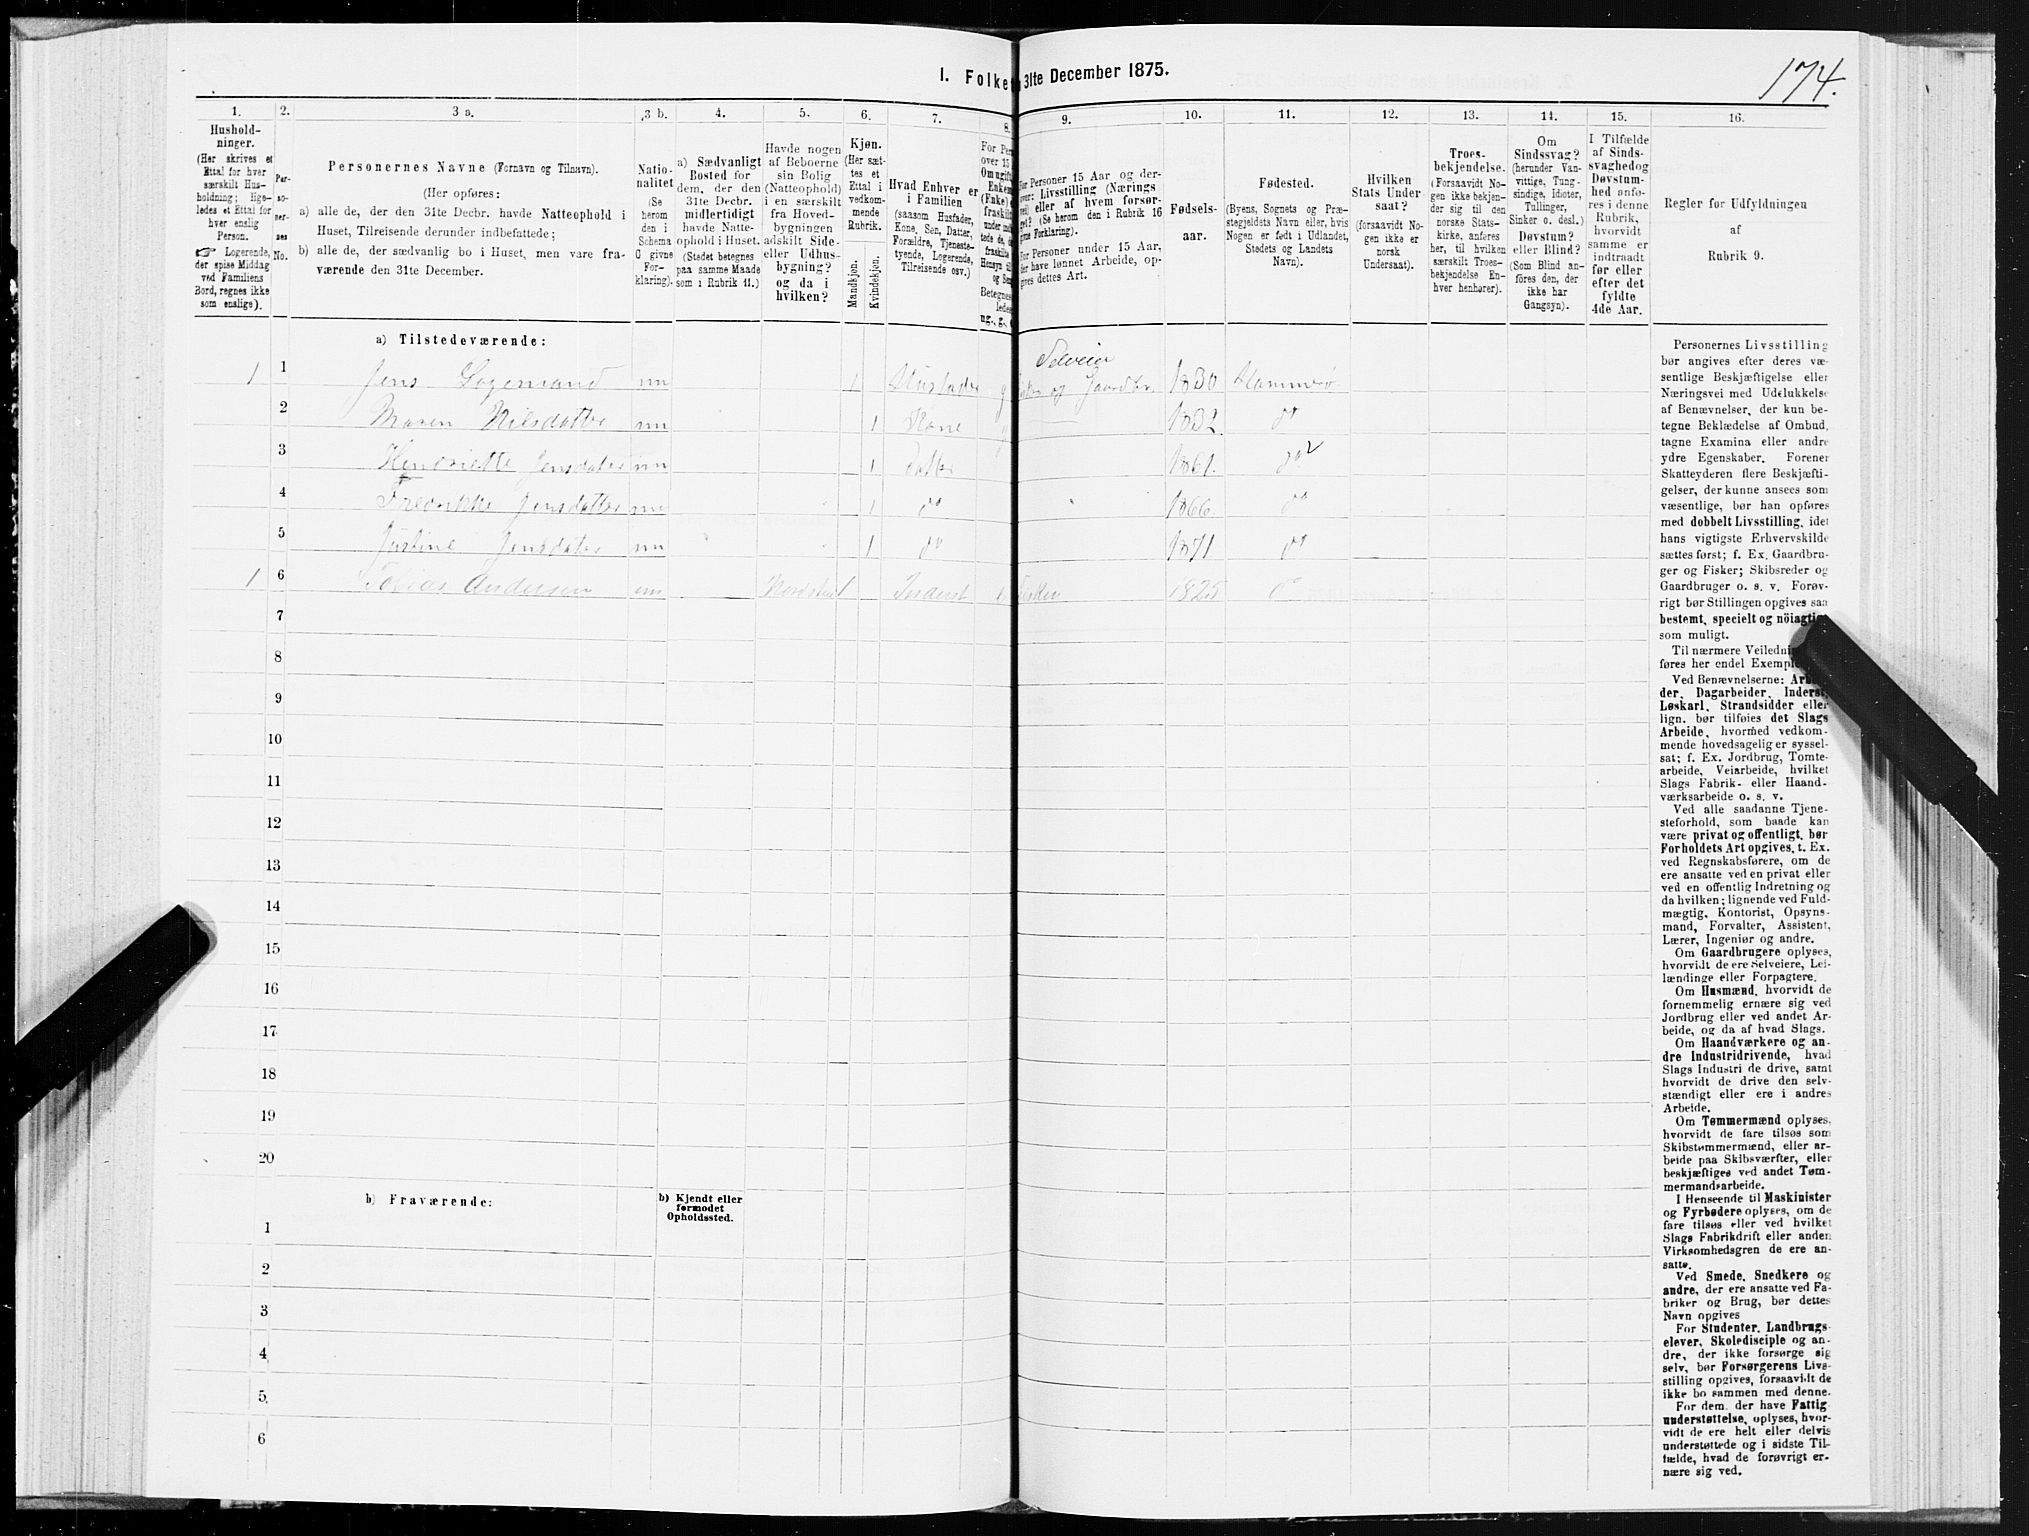 174.
1. Folket 31te December 1875.
1. 2. 3 a. 3 b. 4. 5. 6. 7. 8. 9. 10. 11. 12. 13. 14. 15. 16.
Hushold-
ninger.
(Her skrives et
Ettal for hver
særskilt Hus-
holdning; lige-
ledes et Ettal for
hver enslig
Person.
Logerende,
der spise Middag
ved Familiens
Bord, regnes ikke
som enslige).
Per-
so-
ner-
nes
No.
Personernes Navne (Fornavn og Tilnavn).
(Her opføres:
a) alle de, der den 31te Decbr. havde Natteophold i
Huset, Tilreisende derunder indbefattede;
b) alle de, der sædvanlig bo i Huset, men vare fra-
værende den 31te December.
Natio-
nalitet
(Se
herom
den i
Schema
O givne
For-
klaring).
a) Sædvanligt
Bosted for
dem, der den
31te Decbr.
midlertidigt
havde Natte-
ophold i Huset.
(Stedet betegnes
paa samme Maade
som i Rubrik 11.)
Havde nogen
af Beboerne
sin Bolig
(Natteophold)
i en særskilt
fra Hoved-
bygningen
adskilt Side-
eller Udhus-
bygning?
og da i
hvilken?
Kjøn.
(Her sæt-
tes et
Ettal i
vedkom-
mende
Rubrik.
Mandkjøn.
Kvindekjøn.
Hvad Enhver er
i Familien
(saasom Husfader,
Kone, Søn, Datter,
Forældre, Tjeneste-
tyende, Logerende,
Tilreisende osv.)
For Personer 15 Aar og der-
over: Livsstilling (Nærings
vei) eller af hvem forsør-
get? (Se herom den i Rubrik 16
givne Forklaring).
For Personer under 15 Aar,
der have lønnet Arbeide, op-
gives dettes Art.
Fødsels-
aar.
Fødested.
(Byens, Sognets og Præ-
stegjeldets Navn eller, hvis
Nogen er født i Udlandet,
Stedets og Landets
Navn).
Hvilken
Stats Under-
saat?
(forsaavidt No-
gen ikke er
norsk
Undersaat).
Troes-
bekjendelse.
(Forsaavidt No-
gen ikke bekjen-
der sig til den
norske Stats-
kirke, anføres
her, til hvilken
særskilt Troes-
bekjendelse En-
hver henhører).
Om
Sindssvag?
(herunder Van-
vittige, Tung-
sindige, Idioter,
Tullinger,
Sinker o. desl.)
Døvstum?
eller Blind?
(Som Blind an-
føres den, der
ikke har
Gangsyn).
I Tilfælde
af Sinds-
svaghedog
Døvstum-
hed anfø-
res i denne
Rubrik,
hvorvidt
samme er
indtraadt
før eller
efter det
fyldte
4de Aar.
Regler for Udfyldningen
af
Rubrik 9.
a) Tilstedeværende:
Selveier
1 1 Jens Lagesen 1 Husfader g og Gaardbr. 1830 Hammerø
2 Maren Nilsdatter 1 Kone 1832 do
3 Henriette Jensdatter 1 Datter 1861. do
4 Fredrikke Jensdatter 1 do 1866 do
5 Justine Jensdatter 1 do 1871 do
1 6 Tobias Andersen 1 Inderst Fisker 1825 do
7
8
9
10
11
12
13
14
15
16
17
18
19
20
b) Fraværende:
b) Kjendt eller
formodet
Opholdssted.
1
2
3
4
5
6
Personernes Livsstilling
bør angives efter deres væ-
sentlige Beskjæftigelse eller
Næringsvei med Udelukkelse
af Benævnelser, der kun be-
tegne Beklædelse af Ombud,
tagne Examina eller andre
ydre Egenskaber. Forener
Skatteyderen flere Beskjæfti-
gelser, der kunne ansees som
væsentlige, bør han opføres
med dobbelt Livsstilling, idet
hans vigtigste Erhvervskilde
sættes først; f. Ex. Gaardbru-
ger og Fisker; Skibsreder og
Gaardbruger o. s. v. Forøv-
rigt bør Stillingen opgives saa
bestemt, specielt og nöiagtigt
som muligt.
Til nærmere
føres her endel
Ved Benævnelserne:
der, Dagarbeider, Inderst,
Løskarl, Strandsidder eller
lign. bør tilføies det Slags
Arbeide, hvormed vedkom-
mende hovedsagelig er syssel-
sat; f. Ex. Jordbrug, Tomte-
arbeide, Veiarbeide, hvilket
Slags Fabrik- eller Haand-
værksarbeide o. s. v.
Ved alle saadanne Tjene-
steforhold, som baade kan
være privat og offentligt, bør
Forholdets Art opgives, t. Ex.
ved Regnskabsførere, om de
ere ansatte ved en privat eller
ved en offentlig Indretning og
da hvilken; lignende ved Fuld-
mægtig, Kontorist, Opsyns-
mand, Forvalter, Assistent,
Lærer, Ingeniør og andre.
Om Gaardbrugere oplyses,
hvorvidt de ere Selveiere, Lei-
lændinge eller Forpagtere.
Om Husmænd, hvorvidt de
fornemmelig ernære sig ved
Jordbrug eller ved andet Ar-
beide, og da af hvad Slags.
Om Haandværkere og an-
dre Industridrivende, hvad
Slags Industri de drive, samt
hvorvidt de drive den selv-
stændigt eller ere i andres
Arbeide.
Om Tømmermænd oplyses,
hvorvidt de fare tilsøs som
Skibstømmermænd, eller ar-
beide paa Skibsværfter, eller
beskjæftiges ved andet Tøm-
mermandsarbeide.
I Henseende til Maskinister
og Fyrbødere oplyses, om de
fare tilsøs eller ved hvilket
Slags Fabrikdrift eller anden
Virksomhedsgren de ere an-
satte.
Ved Smede, Snedkere og
andre, der ere ansatte ved Fa-
briker og Brug, bør dettes
Navn opgives
For Studenter, Landbrugs-
elever, Skoledisciple og an-
dre, der ikke forsørge sig
selv, bør Forsørgerens Livs-
stilling opgives, forsaavidt de
ikke bo sammen med denne.
For dem, der have Fattig-
understøttelse, oplyses, hvor-
vidt de ere helt eller delvis
understøttede og i sidste Til-
fælde, hvad de forøvrigt er-
nære sig ved.